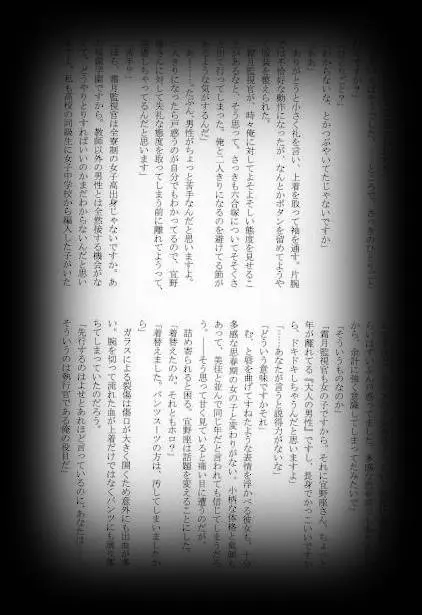 「わからないな、とかつぶやいてたじゃないですか」
「ああ」
ありがとうと小さく礼を言い、上着を取って袖を通す。片腕
では不恰好な動作になったが、なんとかボタンを留めてようや
霜月監視官が、時々俺に対してよそよそしい態度を見せるこ
とがあるなと、そう思って。さっきも六合塚についてそそくさ
と出て行ってしまった。俺と二人きりになるのを避けてる節が
あるような気がするんだ」
「あ……たぶん、男性がちょっと苦手なんだと思いますよ。
二人きりになったら戸惑うのが自分でもわかってるので、宜野
座さんに対して失礼な態度を取ってしまう前に離れてようって、
遠慮しちゃってるんだと思います」
「苦手？」
霜月監視官は全寮制の女子高出身じゃないですか。あ
ですから。教師以外の男性とは全然接する機会がな
どうやりとりすればいいのかまだわからないんだと思い
私も高校の同級生に女子中学校から編入した子がいた
から、余計に強く意識してしまってみたいで」
「そういうものなのか」
「霜月監視官も女の子ですから。それに宜野座さん、ちょっと
年が離れてる『大人の男性』ですし、長身でかっこいいですか
ら、ドキドキしちゃうんだと思いますよ」
「……あなたが言うと説得力がないな」
「どういう意味ですかそれ」
む、と唇を曲げてすねたような表情を浮かべる彼女も、十分
多感な思春期の女の子と変わりがない。小柄な体格と童顔も
あって、美佳と並んで同じ年だと言われても信じてしまうだろ
う。――そう思って甘く見ていると痛い目に遭うのだが。
詰め寄られると困る。宜野座は話題を変えることにした。
「着替えたのか、それともホロ？」
「着替えました。パンツスーツの方は、汚してしまいましたか
ら」
ガラスによる裂傷は傷口が大きく開くため意外にも出血が多
い。腕を切って流れた血が上着だけではなくパンツにも滴り落
ちてしまっていたのだろう。
「先行するのはよせとあれほど言っているのに、あなたは……
そういうのは執行官である俺の役目だ」